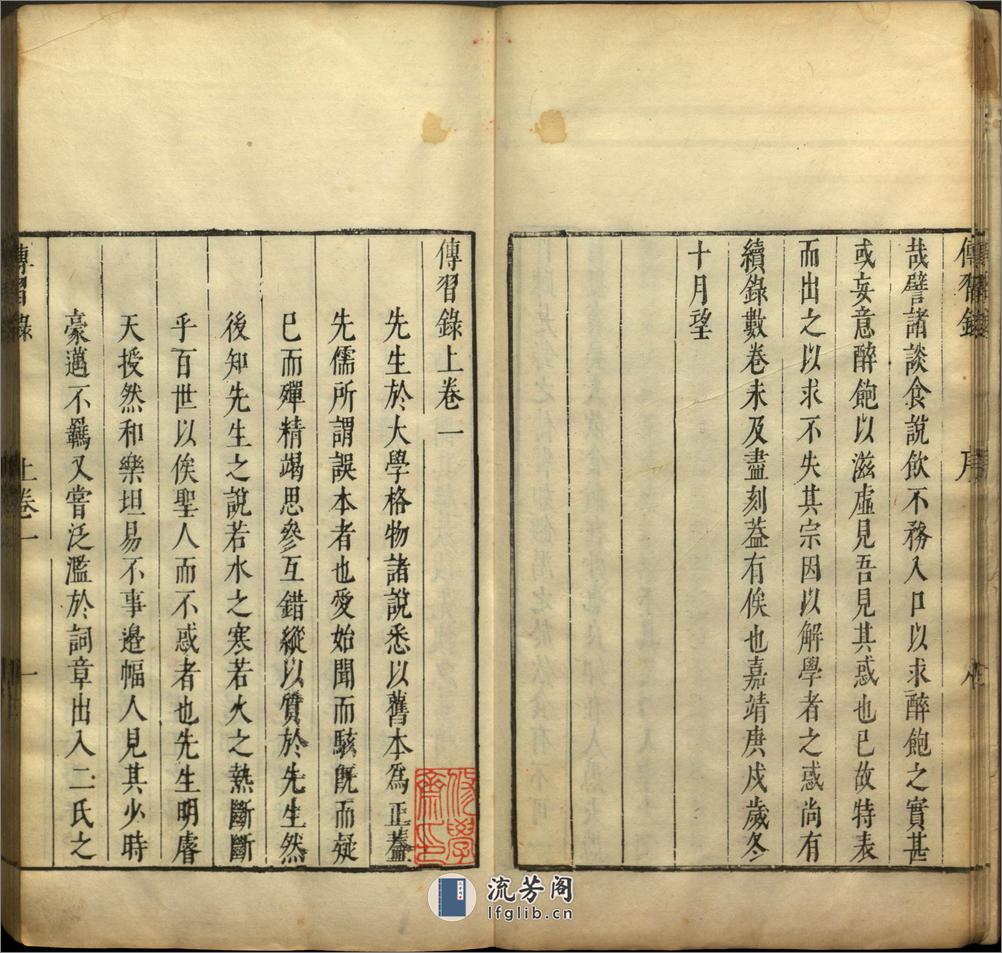 傳習錄
序
哉譬諸談食說飲不務入口以求醉飽之實甚
或妄意醉飽以滋虛見吾見其惑也已故特表
而出之以求不失其宗因以解學者之惑尚有
續錄數卷未及盡刻葢有俟也嘉靖庚戌歲冬
十月望
傳習錄上卷一
先生於大學格物諸說悉以舊本為正蓋
先儒所謂誤本者也愛始聞而駭旣而疑
已而殫精竭思參互錯縱以質於先生然
後知先生之說若水之寒若火之熱斷斷
乎百世以俟聖人而不惑者也先生明睿
天授然和樂坦易不事邉幅人見其少時
豪邁不羈又嘗泛濫於詞章出入二氏之
傳習錄
上卷一
一
流芳阁
lfglib.cn